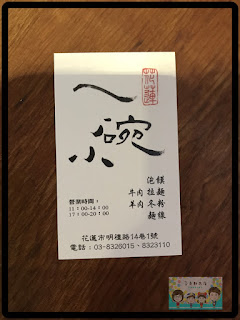 花蓮
一
碗
小
泡饃
牛肉 拉麵
羊肉 冬粉
麵線
營業時間：
11：00-14：00
17：00-20：00
花蓮市明禮路14巷1號
電話：03-8326015、8323110